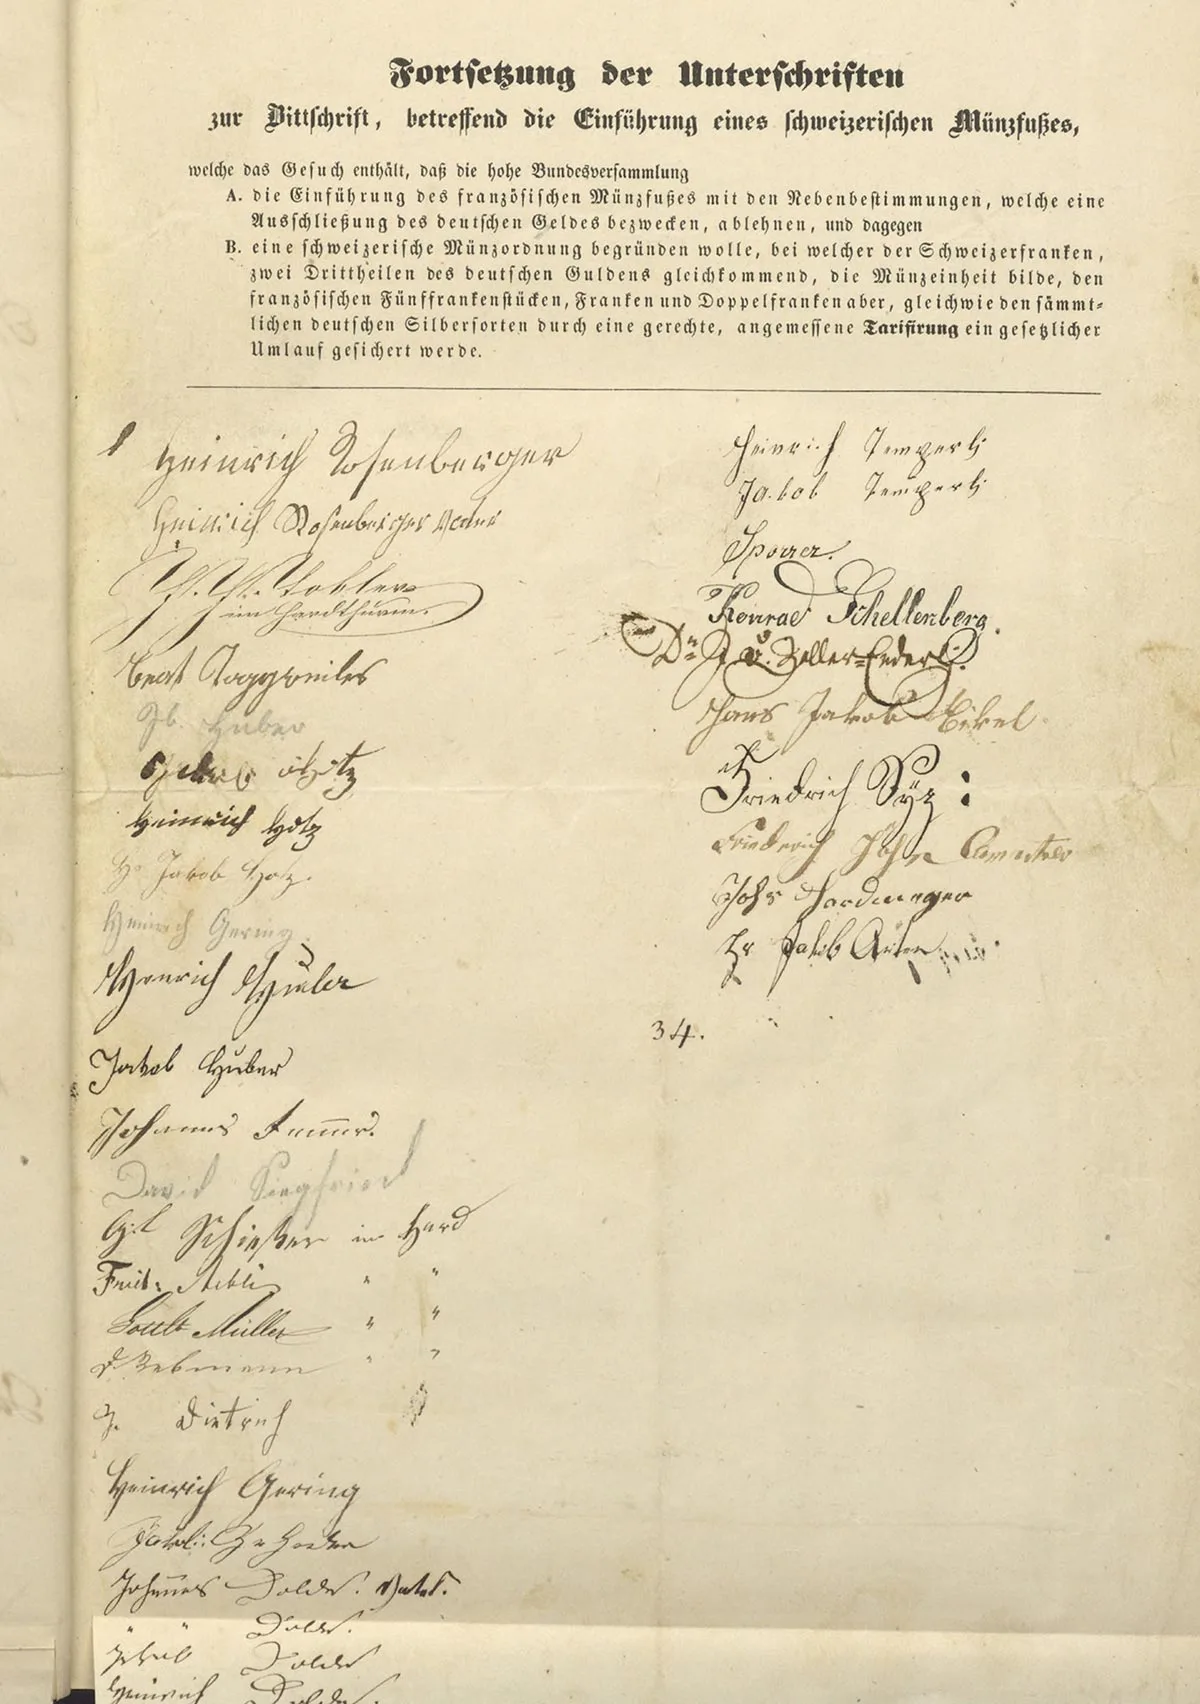 Fortsetzung der Unterschriften
zur Bittschrift, betreffend die Einführung eines schweizerischen Münzfußes,
welche das Gesuch enthält, daß die hohe Bundesversammlung
A. die Einführung des französischen Münzfußes mit den Nebenbestimmungen, welche eine
Ausschließung des deutschen Geldes bezwecken, ablehnen, und dagegen
B. eine schweizerische Münzordnung begründen wolle, bei welcher der Schweizerfranken,
zwei Drittheilen des deutschen Guldens gleichkommend, die Münzeinheit bilde, den
französischen Fünffrankenstücken, Franken und Doppelfranken aber, gleichwie den sämmt-
lichen deutschen Silbersorten durch eine gerechte, angemessene Tarifirung ein gesetzlicher
Umlauf gesichert werde.
Heinrich Rosenberger
Heinrich Rosenberger Vater
Tobler
im Hardthurm.
Beat Toggweiler
Jb. Huber
Hotz
Heinrich Hotz
Hs Jakob Hotz.
Heinrich Gering
Heinrich Huber
Jakob Huber
Johannes
David Siegfried
Schießer im Hard
Frid: Aebli " "
Gottlb Müller " "
Rebmann " "
J. Dietrich
Heinrich Gering
Jakob:
Johannes Dolder. Vater.
" " Dolder.
Jakob Dolder
Heinrich Dolder.
Heinrich Temperli
Jakob Temperli
Sporrer.
Konrad Schellenberg.
Zeller=Enderli.
Hans Jakob Bikel
Friedrich Syz:
Friedrich
Johs Hardmeyer
Hs Jakob
34.